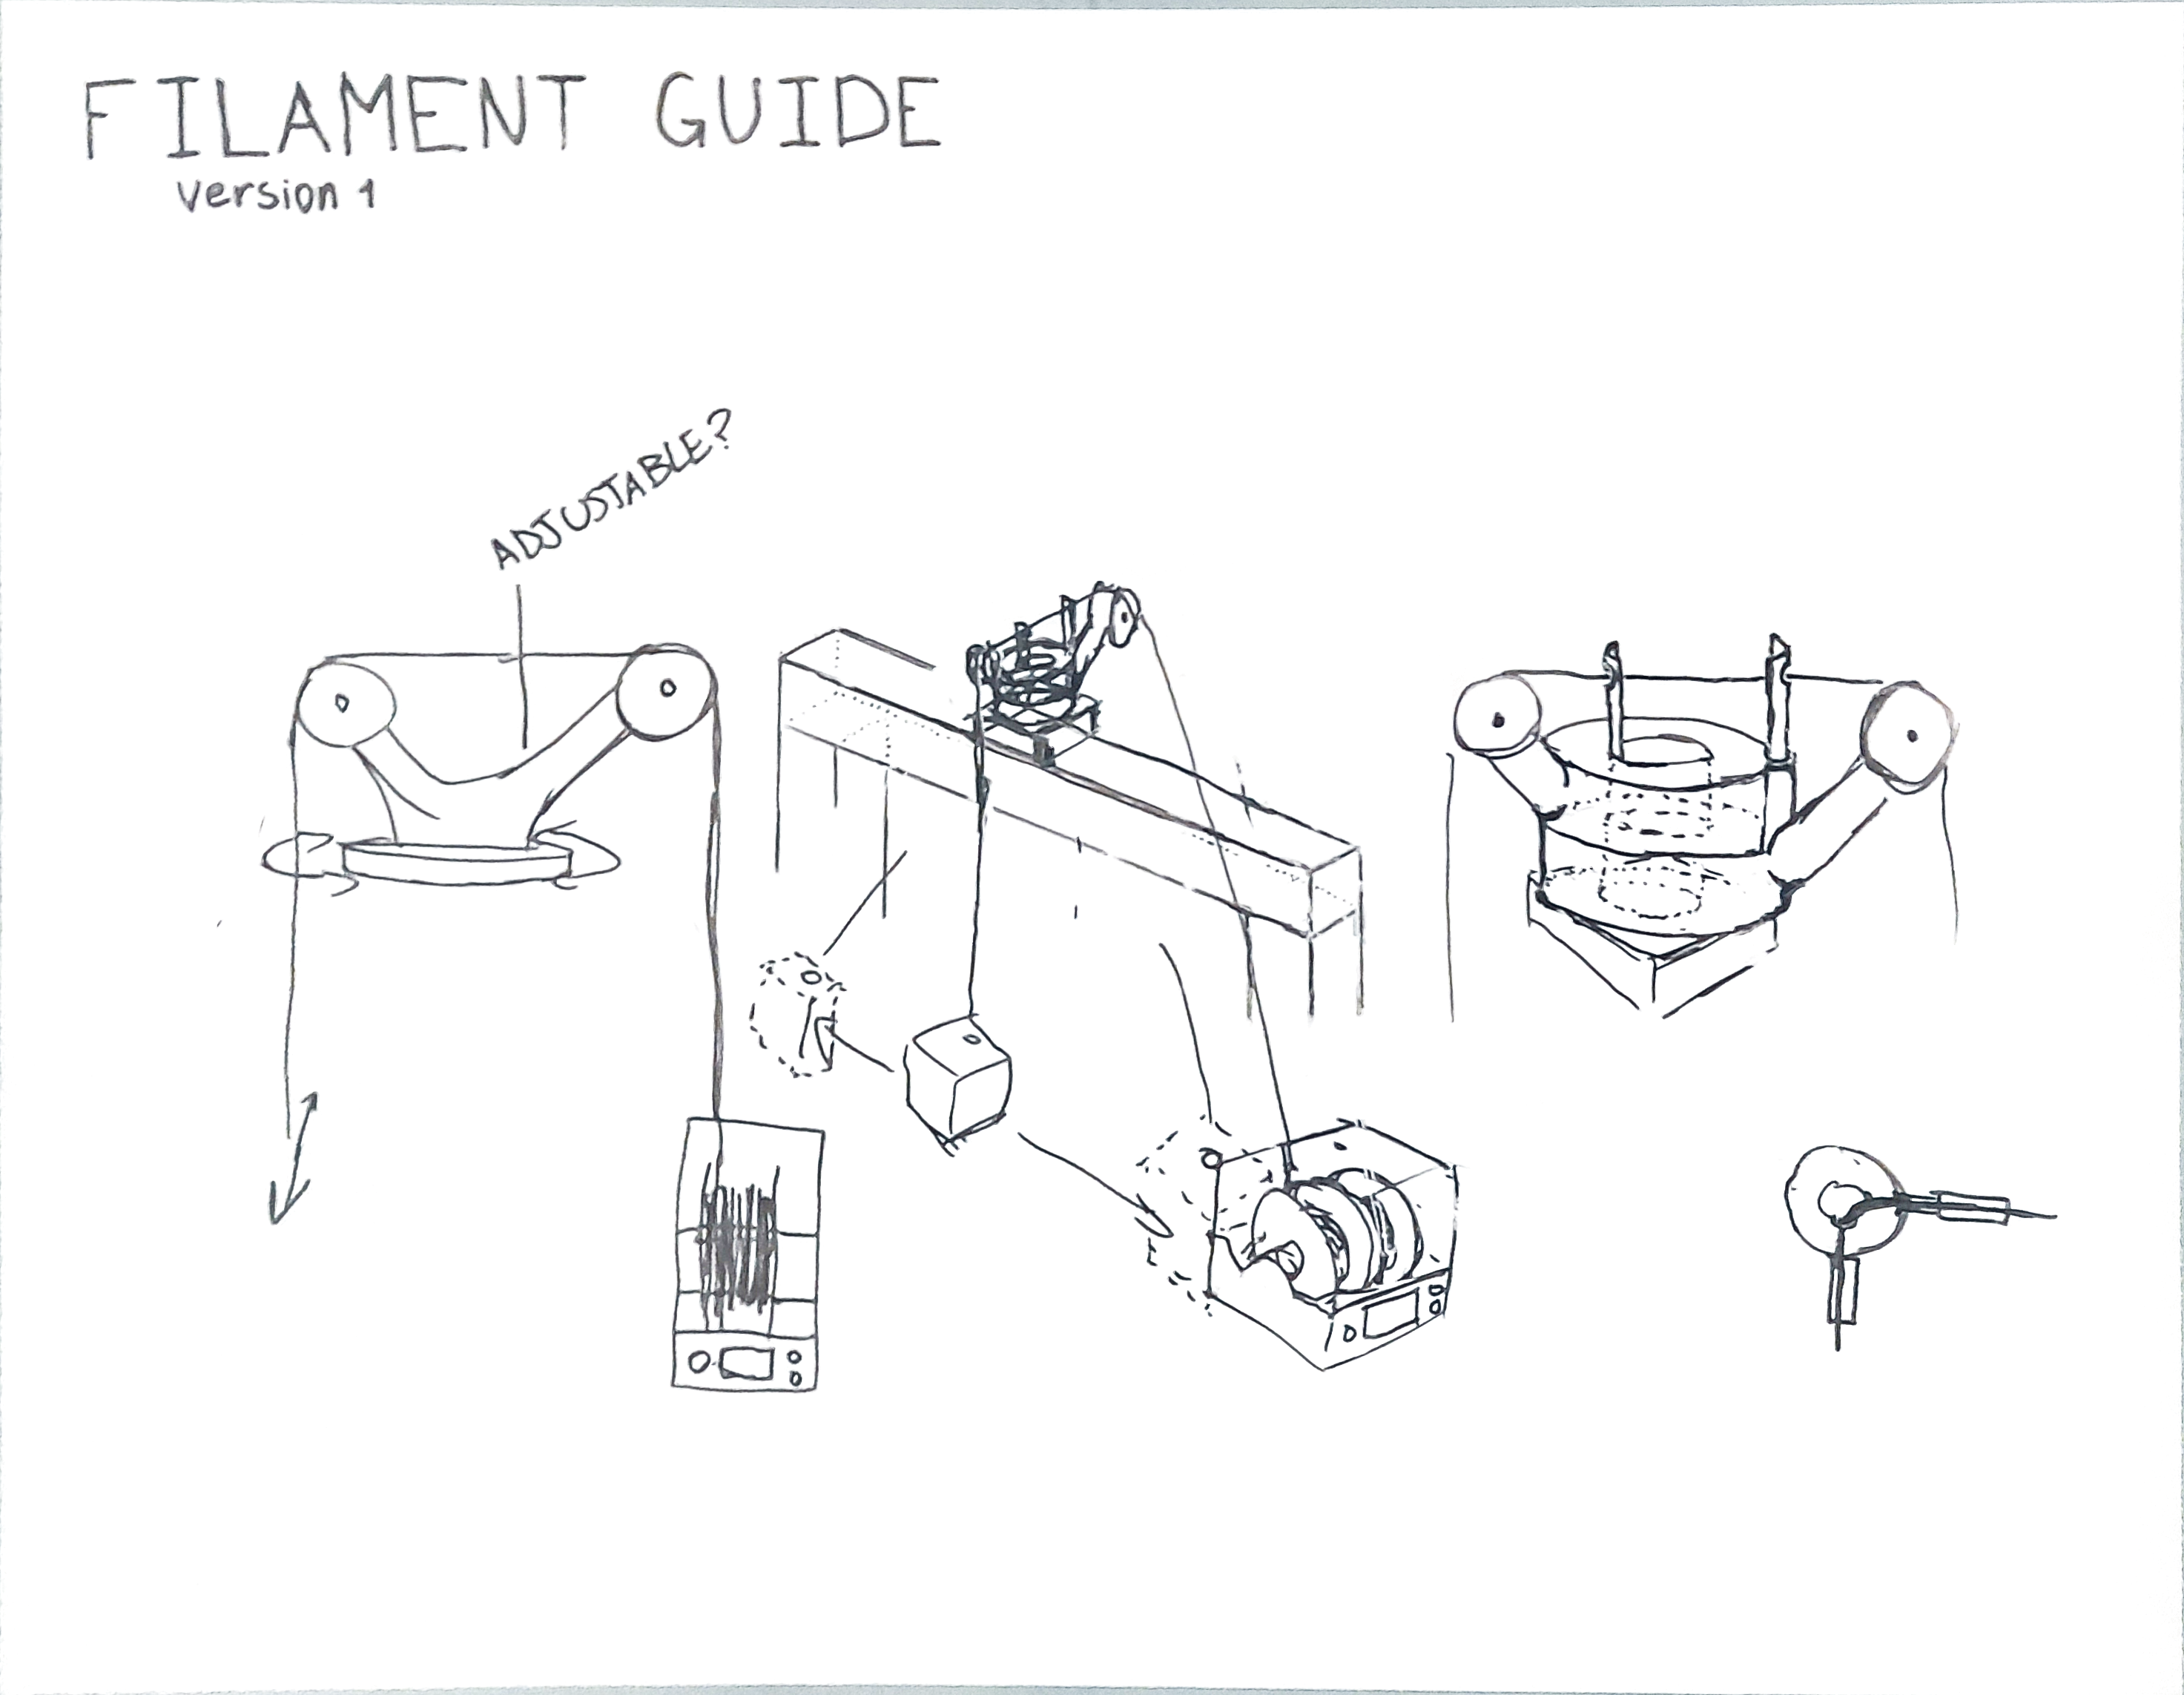 FILAMENT GUIDE
version 1
ADJUSTABLE?